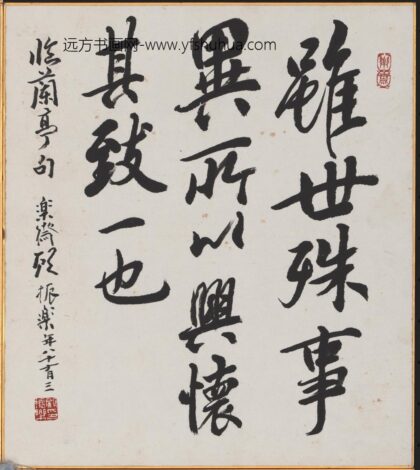 远方书画网-www.yfshuhua.com
雖世殊事
異所以興懷
其致一也
臨蘭亭句
楽齋顧振樂年八十有三